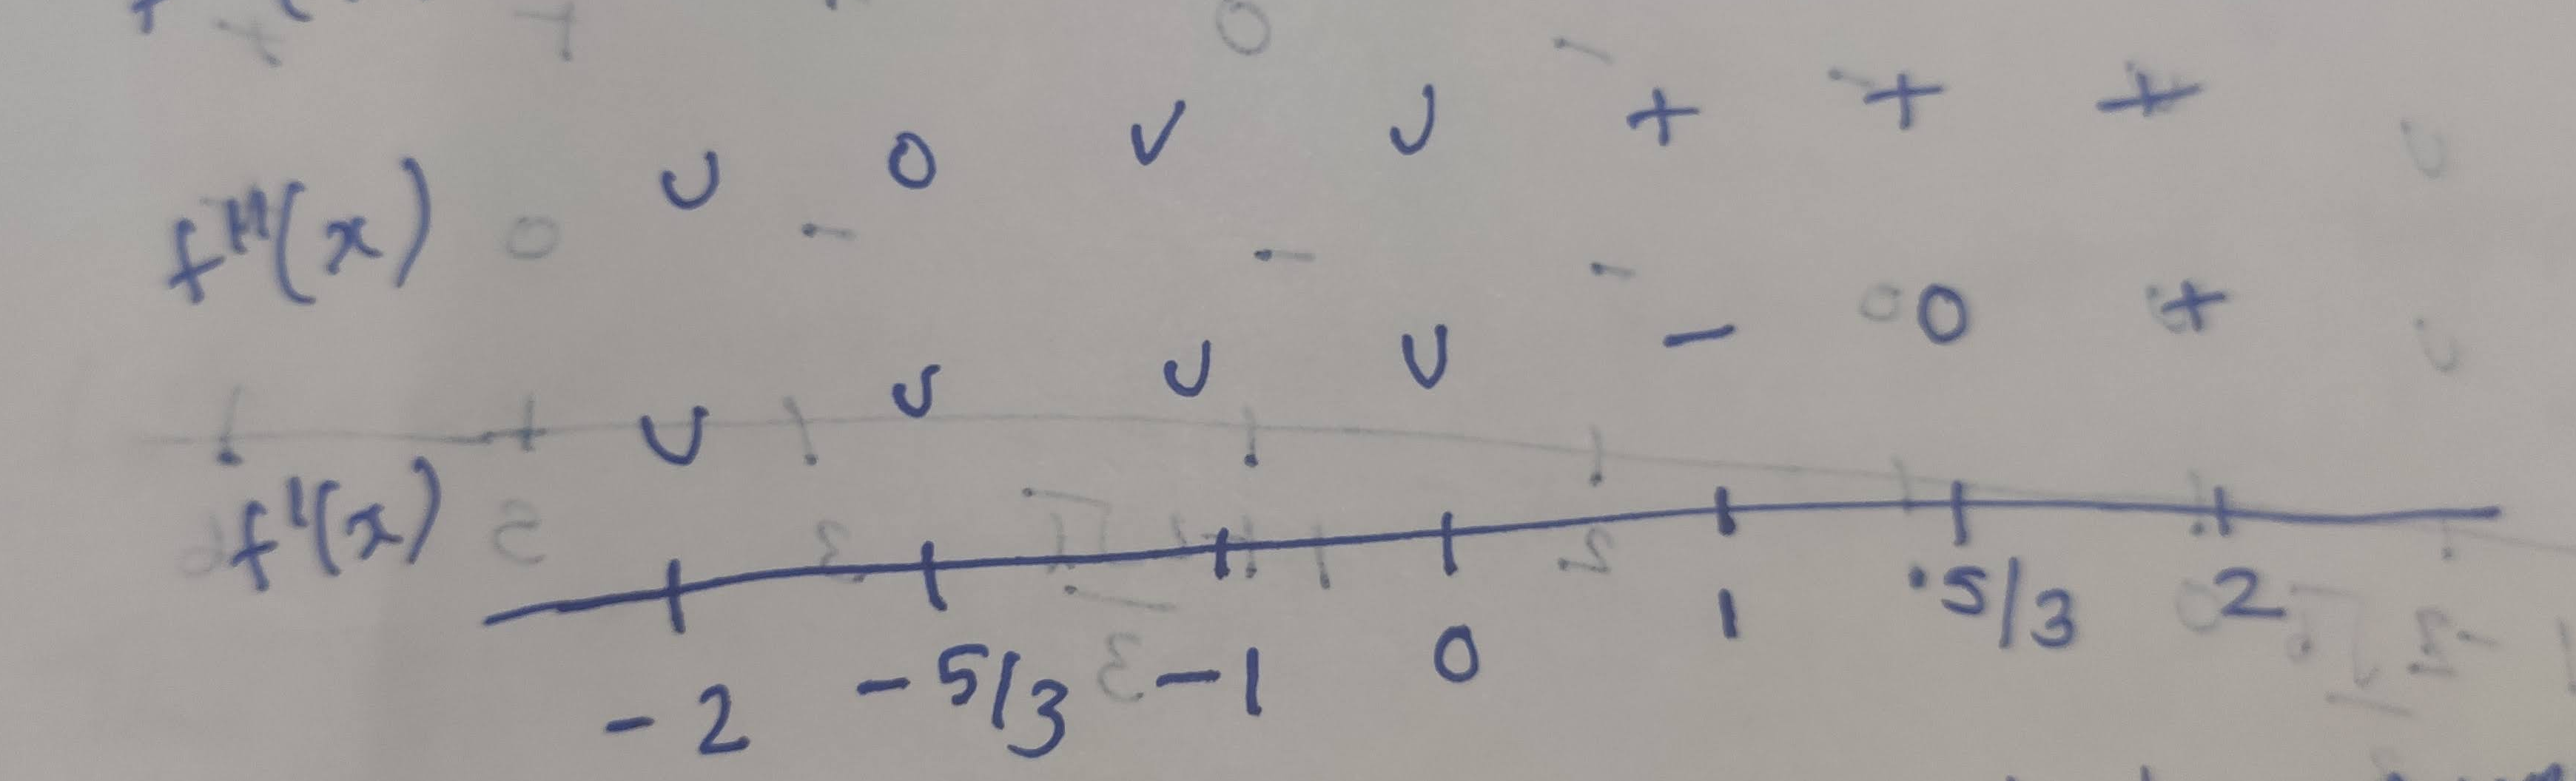 f''(x) U 0 U U + + +
f'(x) U U U U - 0 +
-2 -5/3 -1 0 1 5/3 2